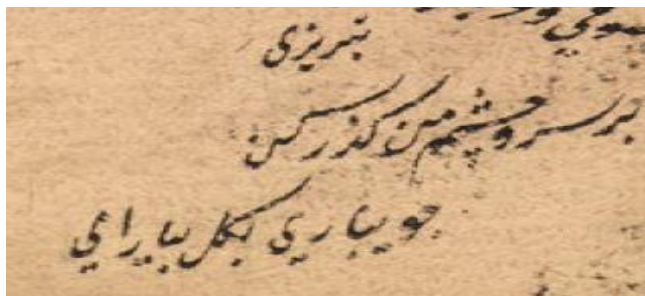 تبریزی
بر سر و چشم من گذر کن
جویباری بگل بیارایی